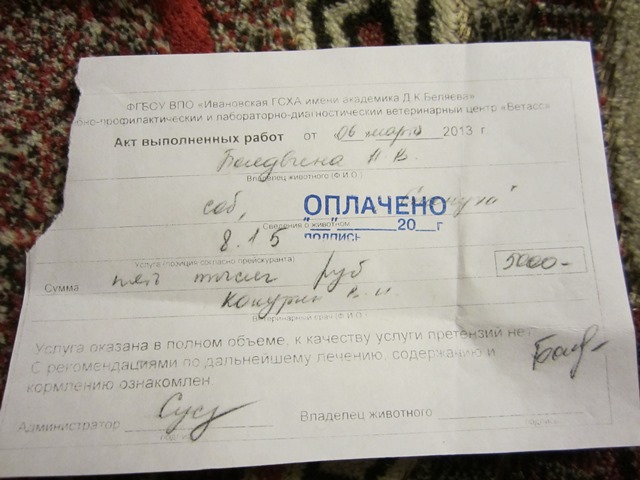 ФГБОУ ВПО «Ивановская ГСХА имени академика Д.К.Беляева»
но-профилактический и лабораторно-диагностический ветеринарный центр «Ветасс»
Акт выполненных работ от 06 марта 2013 г
А В.
Владелец животного (Ф.И.О.)
соб,
ОПЛАЧЕНО
Сведения о животном
"__"______20__г
8.15
ПОДПИСЬ
Услуга (позиция согласно прейскуранта)
Сумма пять тысяч руб 5000-
В. И.
Ветеринарный врач (Ф.И.О.)
Услуга оказана в полном объеме, к качеству услуги претензий нет.
С рекомендациями по дальнейшему лечению, содержанию и
кормлению ознакомлен.
Администратор Владелец животного
подпись подпись